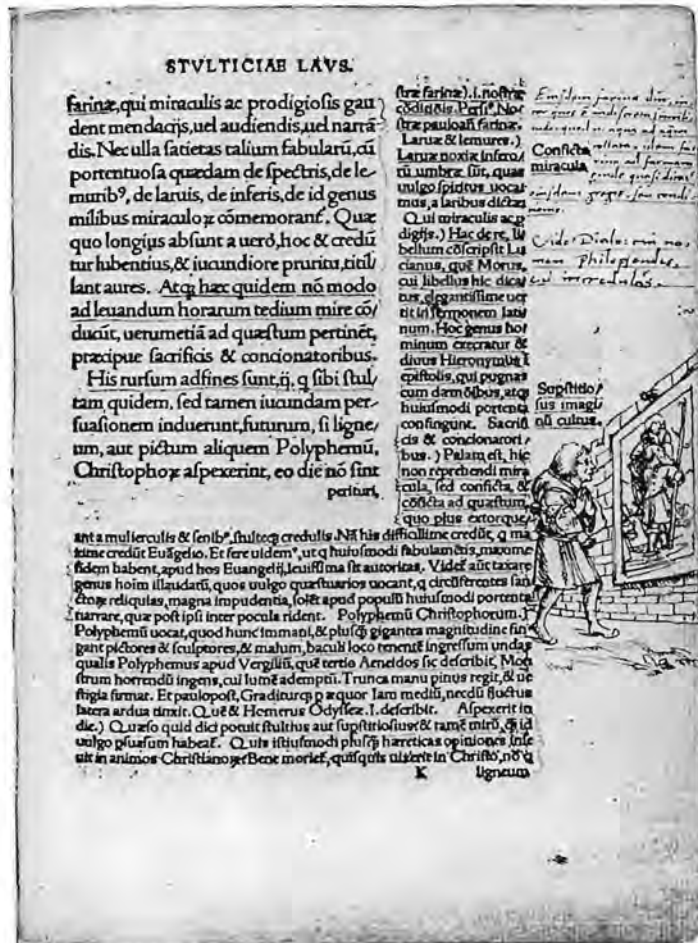 STVLTICIAE LAVS.
farinæ, qui miraculis ac prodigiosis gau
dent mendacijs, uel audiendis, uel narrā
dis. Nec ulla satietas talium fabularū, cū
portentuosa quædam de spectris, de le-
muribꝰ, de laruis, de inferis, de id genus
milibus miraculoꝝ cōmemorant. Quæ
quo longius absunt a uero, hoc & credū
tur lubentius, & iucundiore pruritu, titil
lant aures. Atqꝫ hæc quidem nō modo
ad leuandum horarum tedium mire cō/
ducūt, uerumetiā ad quæstum pertinēt,
præcipue sacrificis & concionatoribus.
His rursum adfines sunt, ij, q sibi stul/
tam, quidem, sed tamen iucundam per/
suasionem induerunt, futurum, si ligne/
um, aut pictum aliquem Polyphemū,
Christophoꝝ aspexerint, eo die nō sint
perituri,
stræ farinæ). i. nostræ
cōditiōis. Persiꝰ. No/
stræ pauloañ farinæ.
Laruæ & lemures.)
Laruæ noxiæ infero/
rū umbræ sūt, quas
uulgo spiritus uocat
mus, a laribus dictæ
Qui miraculis ac p
digijs.) Hac de re, li
bellum cōscripsit Lu
cianus, quē Morus,
cui libellus hic dica/
tus, elegantissime uer
tit in sermonem lati
num. Hoc genus ho/
minum execratur &
diuus Hieronymus ī
epistolis, qui pugnas
cum dæmōibus, atqꝫ
huiusmodi portenta
confingunt. Sacrifi
cis & concionatori/
bus.) Palam est, hic
non reprehendi mira
cula, sed conficta, &
cōficta ad quæstum,
quo plus extorque/
Conficta
miracula
Vide Dialo:
Supstitio/
sus imagi
nū cultus.
ant a mulierculis & senibꝰ, stulteqꝫ credulis. Nā his difficillime credūt, q ma
xime credūt Euāgelio. Et fere uidemꝰ, ut q huiusmodi fabulamētis, maxime
fidem habent, apud hos Euangelij, leuissima sit autoritas. Videt aūt taxare
genus hoīm illaudatū, quos uulgo quæstuarios uocant, q circūferentes san
ctoꝝ reliquias, magna impudentia, solēt apud populū huiusmodi portenta
narrare, quæ post ipsi inter pocula rident. Polyphemū Christophorum.)
Polyphemū uocat, quod hunc immani, & plusqꝫ gigantea magnitudine fin
gant pictores & sculptores, & malum, baculi loco tenentē ingressum undas
qualis Polyphemus apud Vergiliū, quē tertio Aeneidos sic describit, Mon
strum horrendū ingens, cui lumē ademptū. Trunca manu pinus regit, & ue
stigia firmat. Et paulopost, Graditurqꝫ p æquor Iam mediū, necdū fluctus
latera ardua tinxit. Quē & Homerus Odysseæ. I. describit. Aspexerit in
die.) Quæso quid dici potuit stultius aut supstitiosius? & tamē mirū, qꝫ id
uulgo psuasum habeat. Quis istiusmodi plusqꝫ hæreticas opiniones inse
uit in animos Christianoꝝ? Bene moriet, quisquis uixerit in Christo, nō q
K ligneum